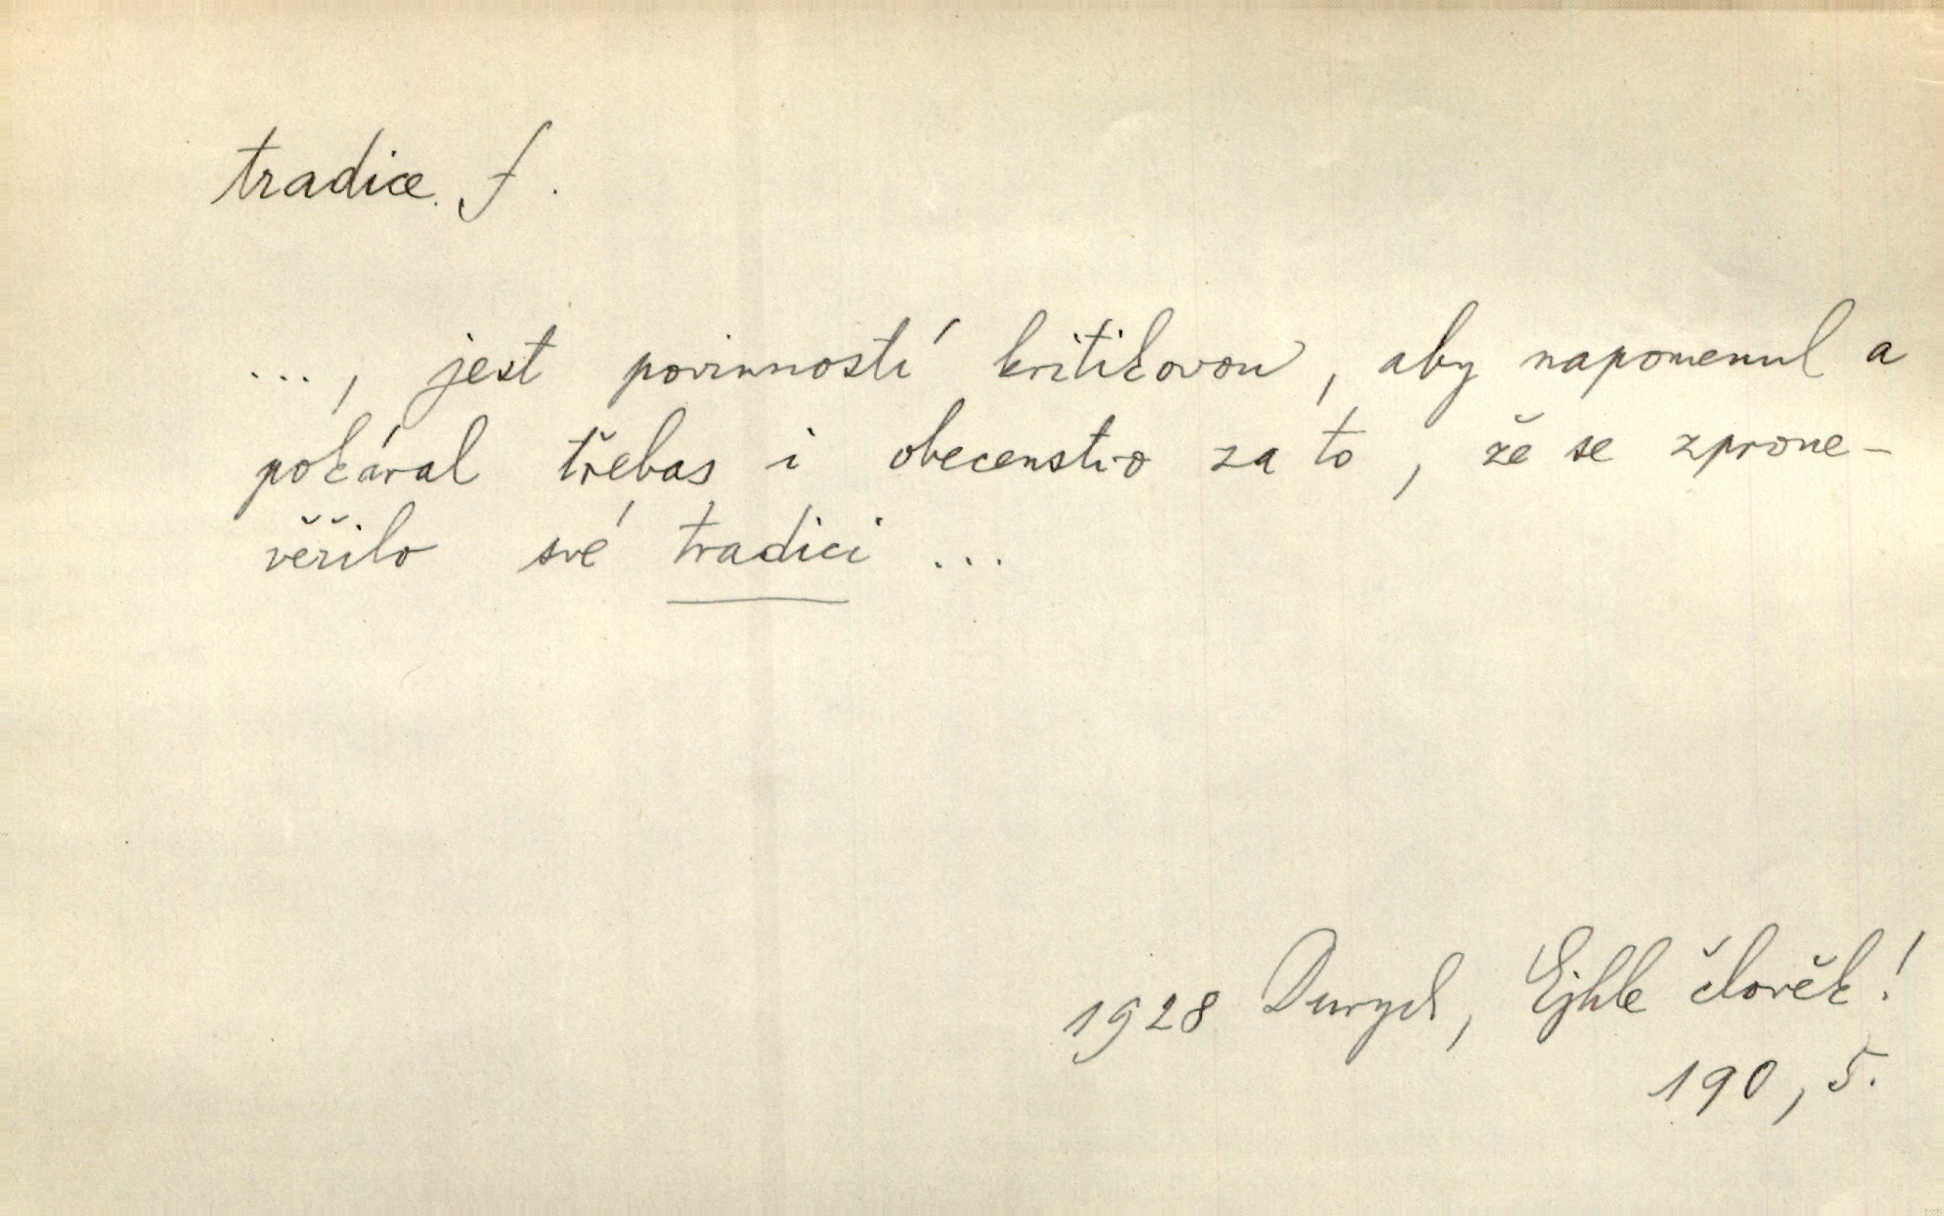 tradice. f.
..., jest povinností kritikovou, aby napomenul a
pokáral třebas i obecenstvo za to, že se zprone-
věřilo své tradici ...
1928 Durych, Ejhle člověk!
190, 5.